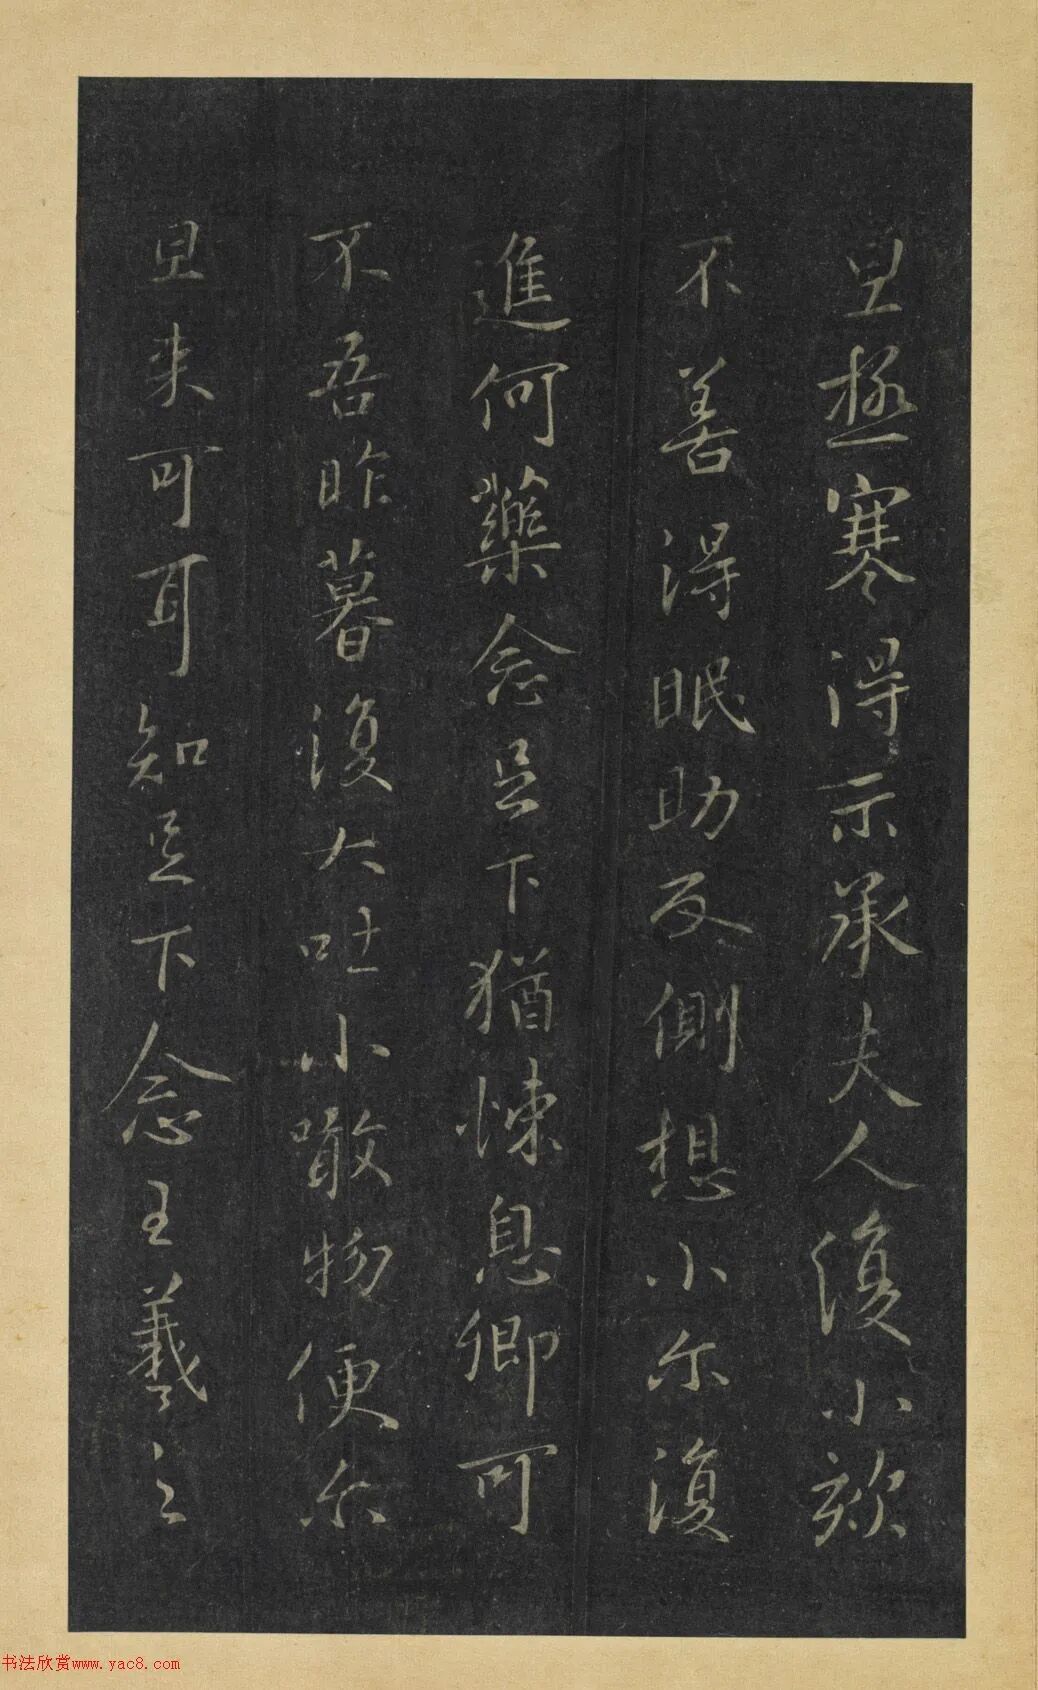 旦極寒得示承夫人復小欬
不善得眠助反側想小尔復
進何藥念足下猶悚息卿可
不吾昨暮復大吐小噉物便尔
旦来可耳知足下念王羲之
书法欣赏www.yac8.com